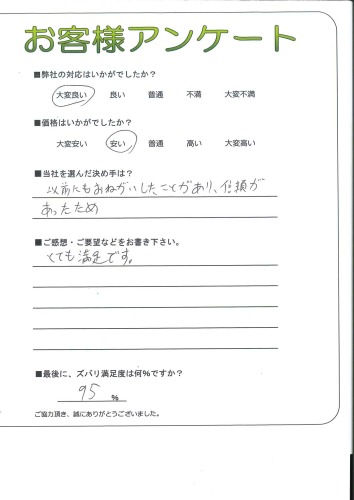 お客様アンケート
■弊社の対応はいかがでしたか？
大変良い 良い 普通 不満 大変不満
■価格はいかがでしたか？
大変安い 安い 普通 高い 大変高い
■当社を選んだ決め手は？
以前にもおねがいしたことがあり、信頼が
あったため
■ご感想・ご要望などをお書き下さい。
とても満足です。
■最後に、ズバリ満足度は何％ですか？
95 ％
ご協力頂き、誠にありがとうございました。